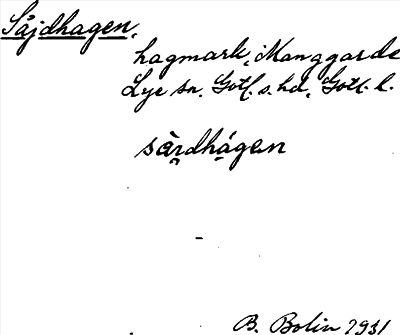 Såjdhagen,
hagmark, Manggarde
Lye sn. Gotl. s. hd, Gotl. l.
B. Bolin 1931